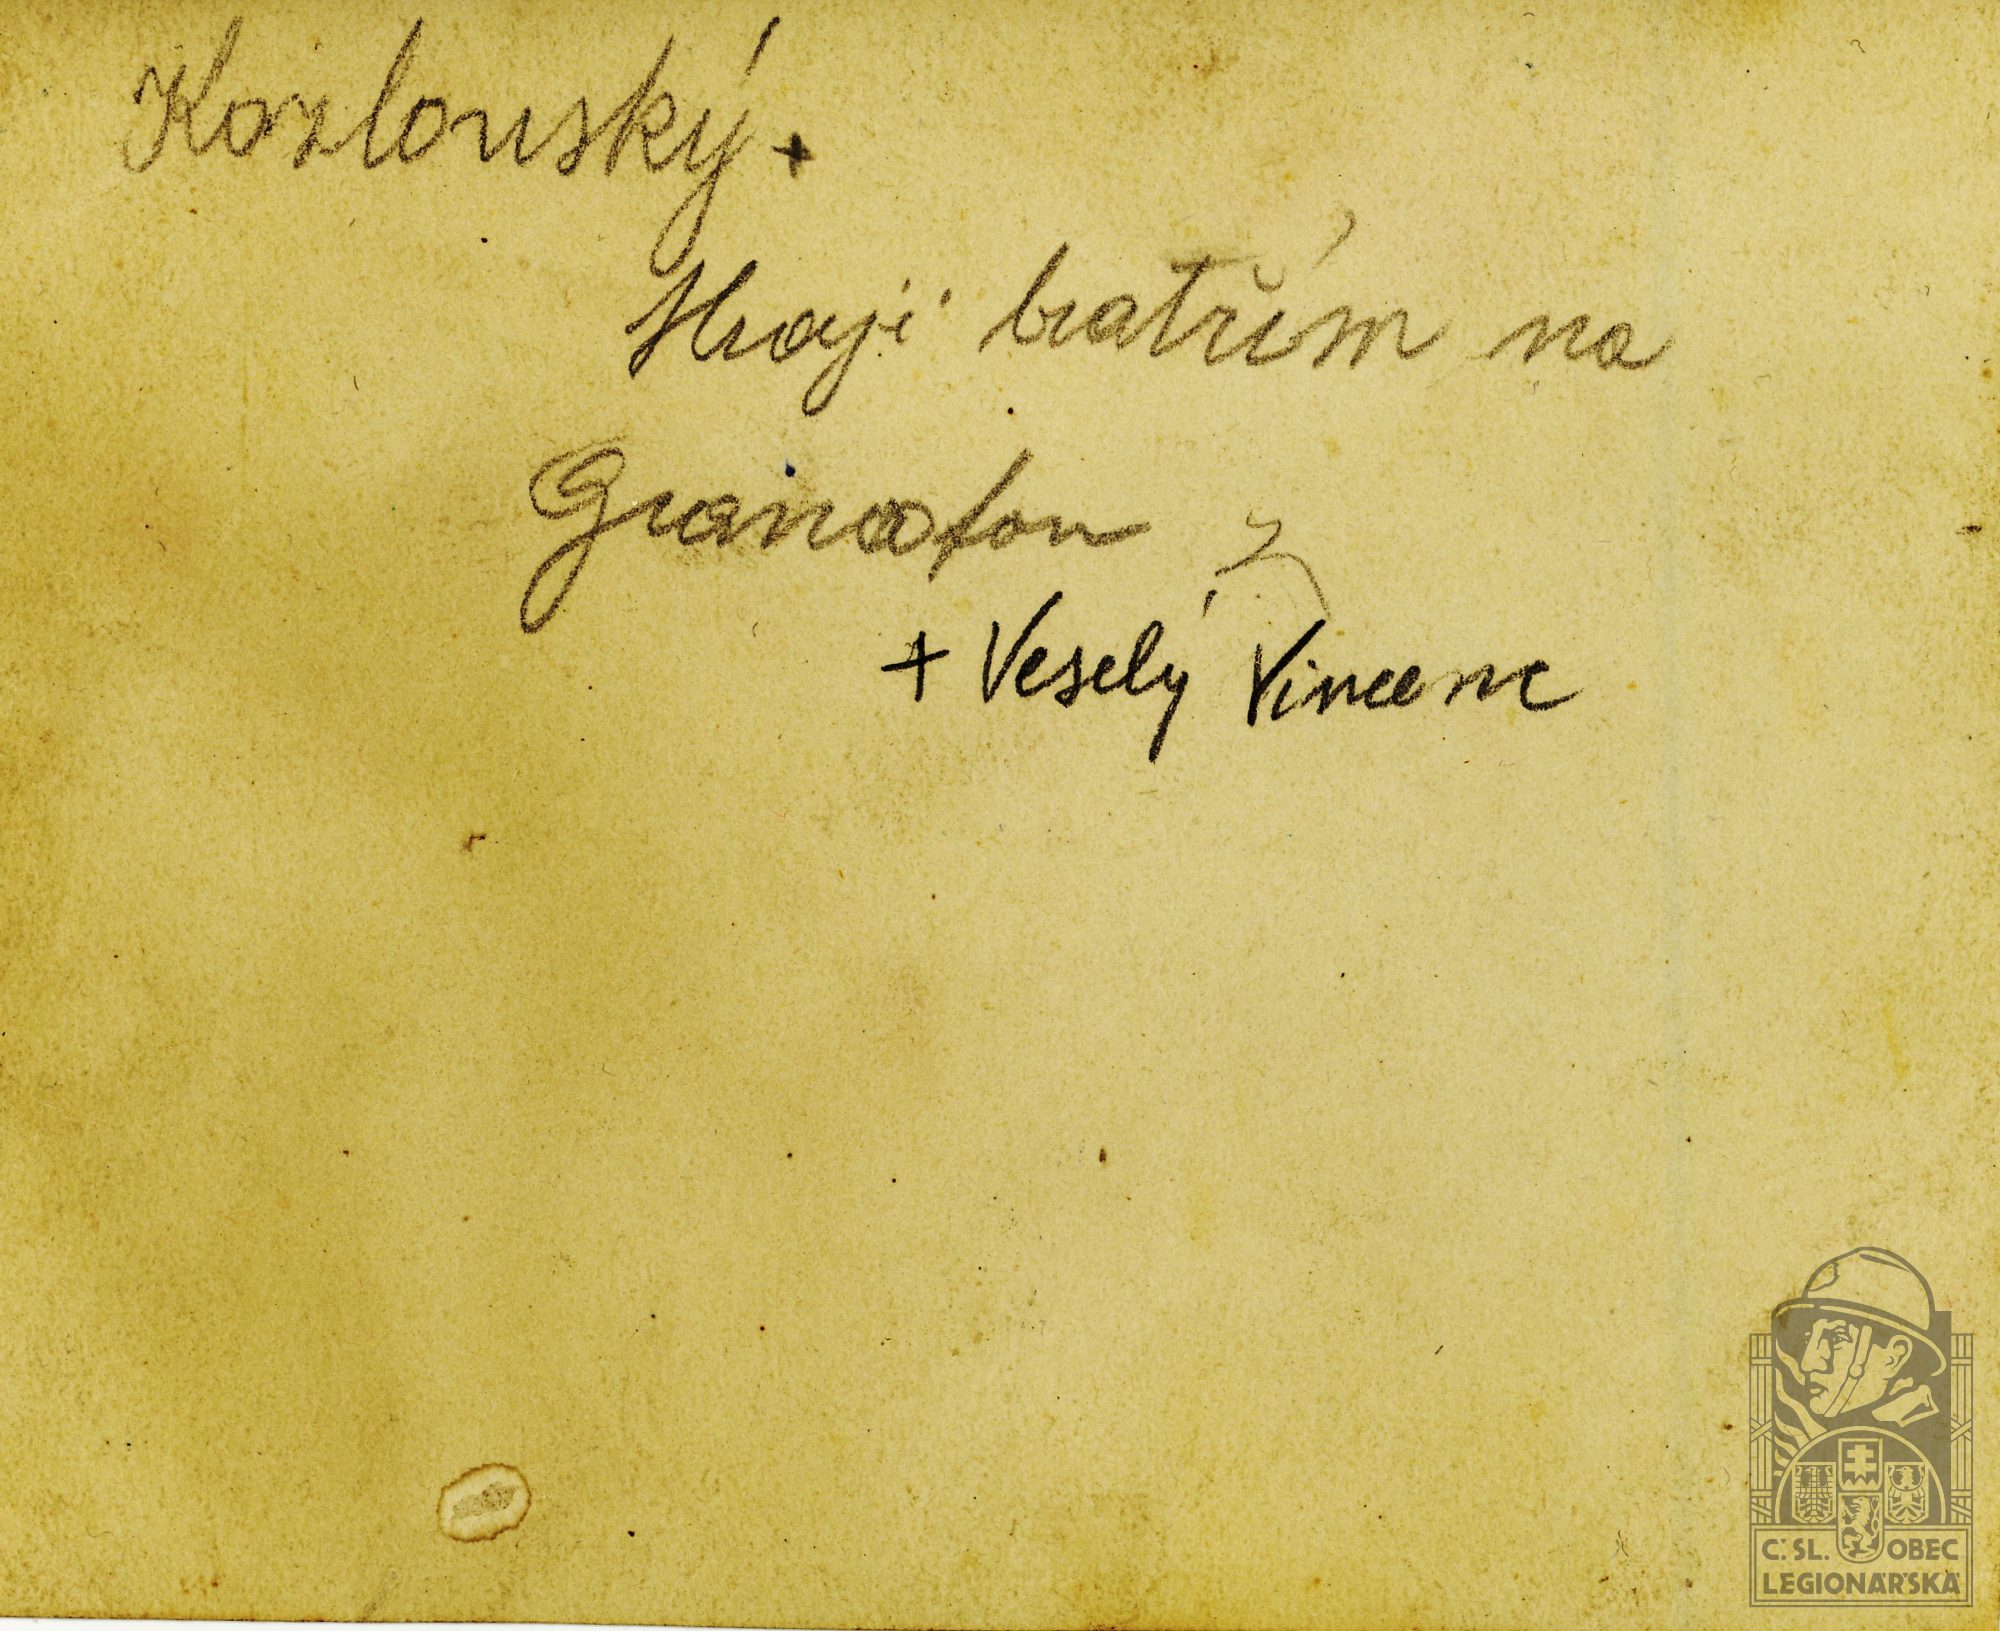 Kozlouský +
Hraji bratřím na
Gramofon
+ Veselý Vincenc
Č. SL. OBEC
LEGIONÁŘSKÁ